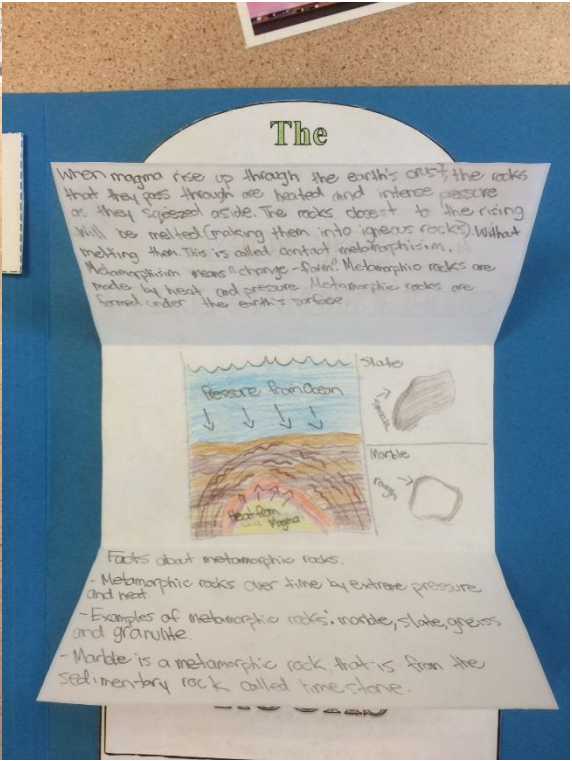 The
When magma rise up through the earth's crust, the rocks
that they pass through are heated and intense pressure
as they sqeezed aside. The rocks closest to the rising
will be melted (making them into igneous rocks). Without
melting them. This is called contact metamorphisism.
Metamorphisim means "change-form". Metamorphic rocks are
made by heat and pressure. Metamorphic rocks are
formed under the earth's surface.
Pressure from Ocean
Heat from
Magma.
Slate
smooth
Marble
rough
Facts about metamorphic rocks.
- Metamorphic rocks over time by extreme pressure
and heat.
- Examples of metamorphic rocks: marble, slate, greiss
and granulite.
- Marble is a metamorphic rock that is from the
sedimentary rock called limestone.